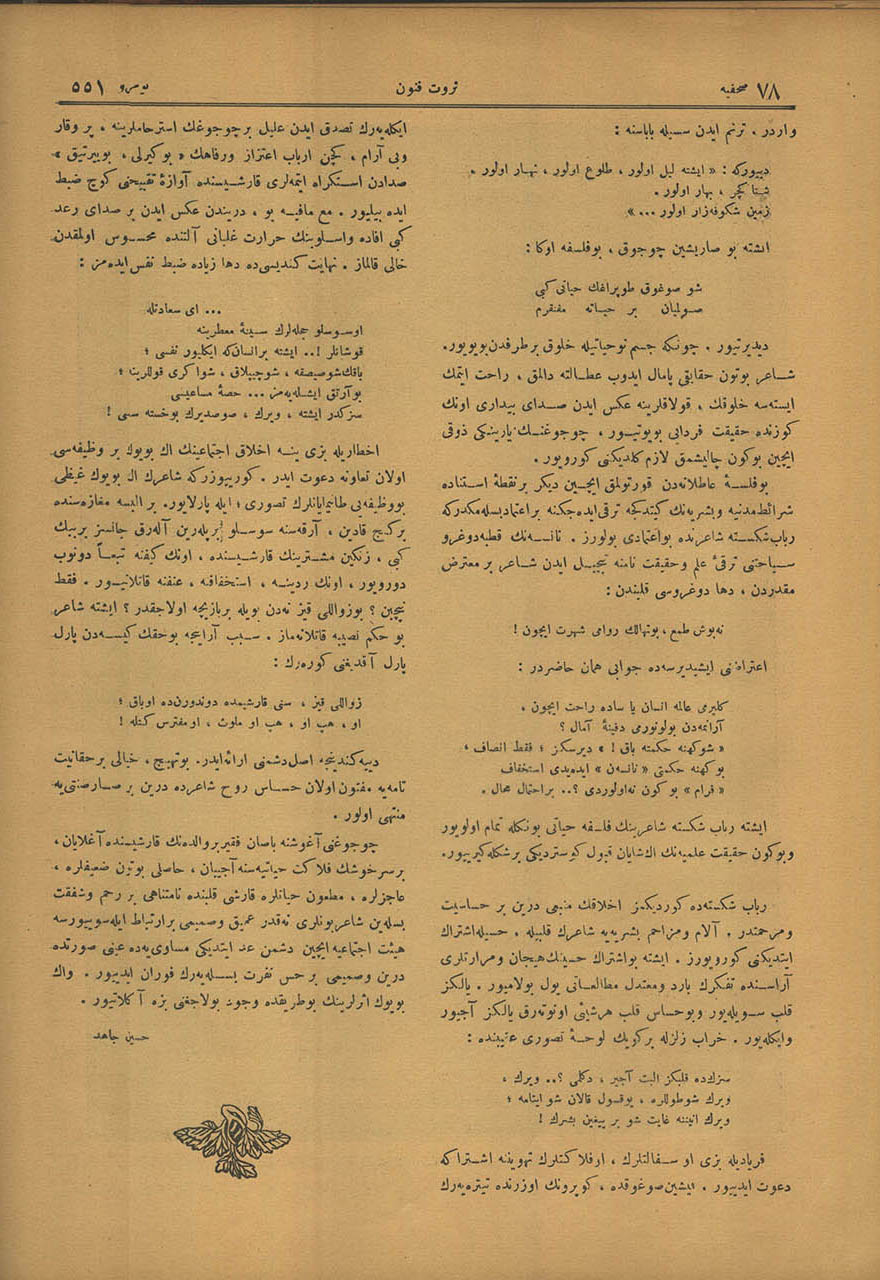 صحفیه ٧٨
ثروت فنون
نومرو ٥٥١
واردر ، ترنم ایدن سسیله باباسنه :
دییورکه : « ایشته لیل اولور ، طلوع اولور ، نهار اولور .
شتا کچر ، بهار اولور .
زمین شکوفه‌زار اولور ... »
ایشته بو صاریشین چوجوق ، بوفلسفه اوکا :
شو صوغوق طوپراغك حیاتی کبی
صولیان بر حیاته مفتقرم
دیدیرتیور . چونکه جسم نوحیاتیله خلوق برطرفدن بویویور.
شاعر بوتون حقایقی پامال ایدوب عطالته دالمق ، راحت ایتمك
ایسته‌سه خلوقك ، قولاقلرینه عکس ایدن صدای بیداری اونك
کوزنده حقیقت فردایی بویوتیور ، چوجوغنك یارینکی ذوقی
ایچین بوکون چالیشمق لازم کلدیکنی کورویور.
بوفلسفهٔ عاطلانه‌دن قورتولمق ایچین دیکر برنقطهٔ استناده
شرائط مدنیه و بشریه‌نك کیتدکجه ترقی ایده‌جکنه براعتماد بسله‌مکدرکه
رباب شکسته شاعرنده بواعتمادی بولورز . نانسه‌نك قطبه‌دوغرو
سیاحتنی ترقیٔ علم وحقیقت نامنه تبجیل ایدن شاعر بر معترض
مقدردن ، دها دوغروسی قلبندن :
نه‌بوش طمع ، بوتهالك روامی شهرت ایچون !
اعتراضنی ایشیدیرسه‌ده جوابی همان حاضردر :
کلیرمی عالمه انسان یا ساده راحت ایچون ،
آرانمه‌دن بولونورمی دفینهٔ آمال ؟
« شوکهنه حکمته باق ! » دیرسکز ؛ فقط انصاف ،
بوکهنه حکمتی « نانسه‌ن » ایده‌یدی استخفاف
« فرام » بوکون نه‌اولوردی ؟.. براحتمال محال .
ایشته رباب شکسته شاعرینك فلسفه حیاتی بونکله تمام اولویور
وبوکون حقیقت علمیه‌نك اك شایان قبول کوستردیکی برشکله کیرییور.
رباب شکسته‌ده کوردیکمز اخلاقك منبعی درین بر حساسیت
ومرحمتدر . آلام ومزاحم بشریه‌یه شاعرك قلبیله ، حسیله اشتراك
ایتدیکنی کورویورز . ایشته بواشتراك حسینك هیجان ومرارتلری
آراسنده تفکرك بارد ومعتدل مطالعاتی یول بولامیور . یالکز
قلب سویله‌یور وبوحساس قلب هرشیئی اونوته‌رق یالکز آجیور
وایکله‌یور . خراب زلزله برکویك لوحهٔ تصوری عقیبنده :
سزکده قلبکز البت آجیر ، دکلمی ؟.. ویرك ،
ویرك شوطوللره ، یوقسول قالان شو ایتامه ؛
ویرك انیننه غایت شو بر ییغین بشرك !
فریادیله بزی او سفالتلرك ، اوفلاکتلرك تهوینه اشتراکه
دعوت ایدییور . قیشین صوغوقده ، کوپرونك اوزرنده تیتره‌یه‌رك
ایکله‌یه‌رك تصدق ایدن علیل برچوجوغك استرحاملرینه ، پر وقار
وبی آرام ، کچن ارباب اعتزاز ورفاهك « بوکیرلی ، بوییرتیق »
صدادن استکراه ایتمه‌لری قارشیسنده آوازهٔ تقبیحنی کوچ ضبط
ایده بیلیور . مع مافیه بو ، دریندن عکس ایدن بر صدای رعد
کبی افاده واسلوبنك حرارت غلیانی آلتنده محسوس اولمقدن
خالی قالماز . نهایت کندیسی‌ده دها زیاده ضبط نفس ایده‌مز :
... ای سعادتله
اوسوسلو جمله‌لرك سینهٔ معطرینه
قوشانلر !.. ایشته برانسان‌که ایکلیور نفسی ؛
باقك شوصیصقه ، شوچیپلاق ، شواکری قوللرینه ؛
بوآرتق ایشله‌یه‌مز ... حصهٔ مساعیسی
سزکدر ایشته ، ویرك ، صوصدیرك بوخسته سسی !
اخطاریله بزی ینه اخلاق اجتماعینك اك بویوك بر وظیفه‌سی
اولان تعاونه دعوت ایدر . کورییورزکه شاعرك اك بویوك غیظی
بووظیفه‌یی طانیمایانلرك تصوری ؛ ایله پارلایور. بر البسه مغازه‌سنده
برکنج قادین ، آرقه‌سنه سوسلو شیلری آله‌رق جانسز بربیك
کبی ، زنکین مشترینك قارشیسنده ، اونك کیفنه تبعاً دونوب
دورویور ، اونك ردینه ، استخفافنه ، عنفنه قاتلانییور . فقط
نیچین ؟ بوزواللی قیز نه‌دن بویله بربازیچه اولاجقدر ؟ ایشته شاعر
بو حکم نصیبه قاتلانه‌ماز . سبب آرایجه بوحقك کیسه‌دن پارل
پارل آقدیغنی کوره‌رك :
زواللی قیز ، سنی قارشیمده دوندورن‌ده اوباق ؛
او ، هپ او ، هپ او ملوث ، اومفترس کتله !
دییه کندینجه اصل دشمنی ارائه ایدر. بوتهییج ، خیالی برحقانیت
تامه‌یه مفتون اولان حساس روح شاعرده درین بر صارصنتی‌یه
منتهی اولور .
چوجوغنی آغوشنه باصان فقیر بروالده‌نك قارشیسنده آغلایان ،
برسرخوشك فلاکت حیاتیه‌سنه آجییان ، حاصلی بوتون ضعیفلره ،
عاجزلره ، مطعون حیاتلره قارشی قلبنده نامتناهی بر رحم وشفقت
بسله‌ین شاعر بونلری نه‌قدر عمیق وصمیمی برارتباط ایله سوییورسه
هیئت اجتماعیه ایچین دشمن عد ایتدیکی مساوی‌یه‌ده عینی صورتده
درین وصمیمی بر حس نفرت بسله‌یه‌رك فوران ایدییور . واك
بویوك اثرلرینك بوطریقده وجود بولاجغنی بزه آکلاتیور .
حسین جاهد